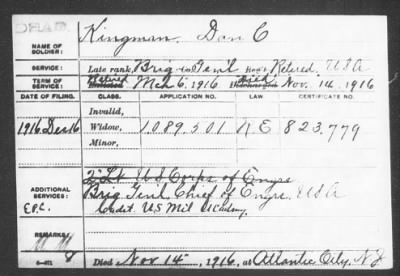 DEAD.
NAME OF SOLDIER: Kingman, Dan C
SERVICE: Late rank, Brig Genl Reg't Retired, USA
TERM OF SERVICE: Retired Enlisted Mch 6, 1916 Died Discharged Nov. 14, 1916
DATE OF FILING. CLASS. APPLICATION NO. LAW CERTIFICATE NO.
Invalid,
1916 Dec 16 Widow, 1,089,501 N.E 823,779
Minor,
2" Lt U S Corps of Engrs
ADDITIONAL SERVICES: Brig Genl, Chief of Engrs, USA
Cadet. U.S Mil Academy
REMARKS:
Died Nov 14, 1916, at Atlantic City, NJ